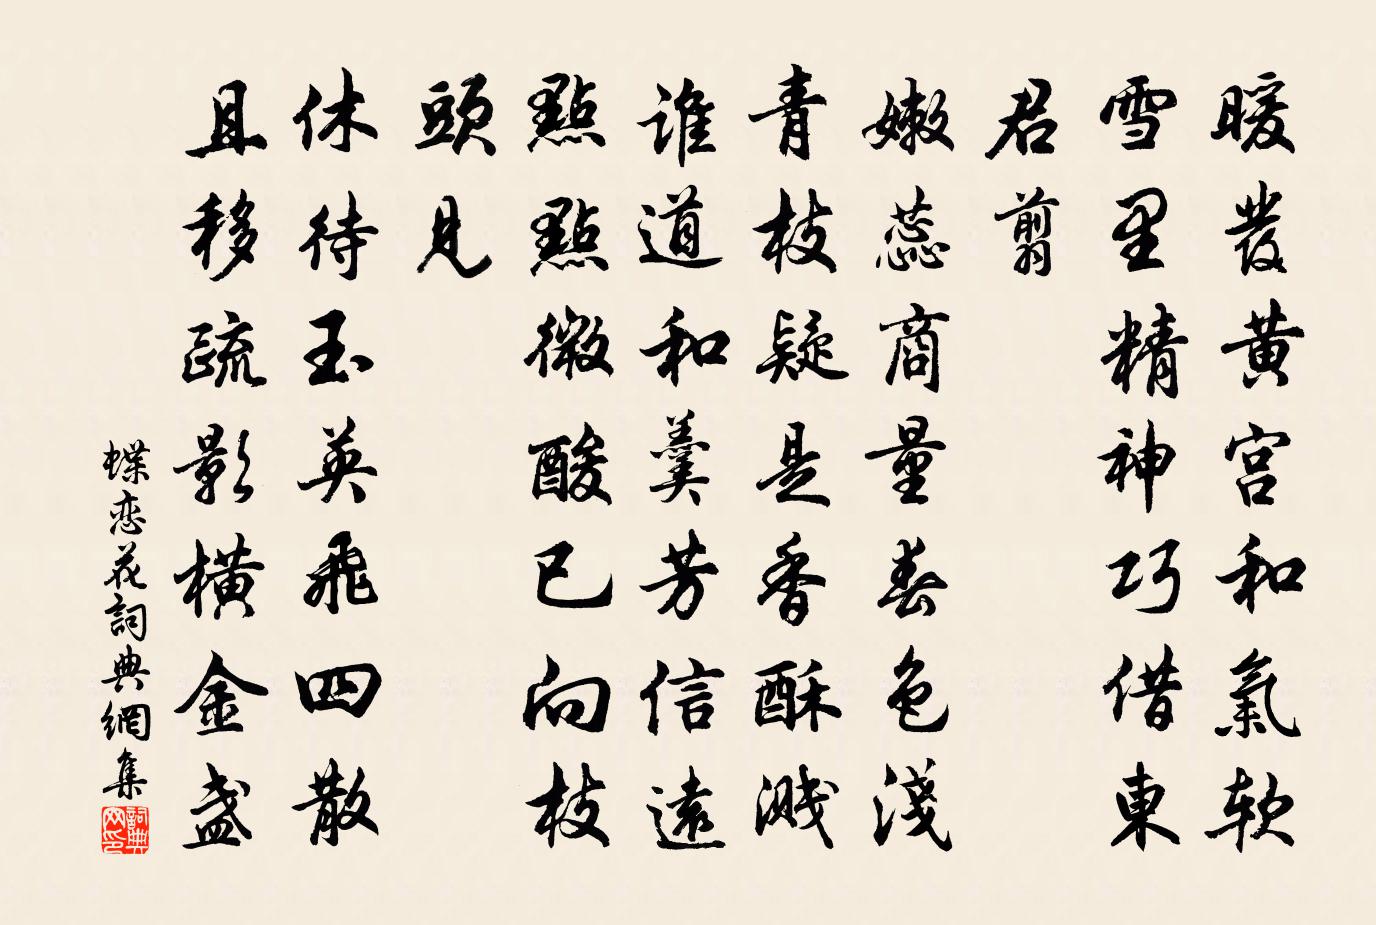 暖發黃宮和氣软
雪里精神巧借東
君翦
嫩蕊商量春色淺
青枝疑是香酥濺
誰道和羹芳信遠
點點微酸已向枝
頭見
休待玉英飛四散
且移疏影橫金盞
蝶恋花詞典網集
詞典
网印